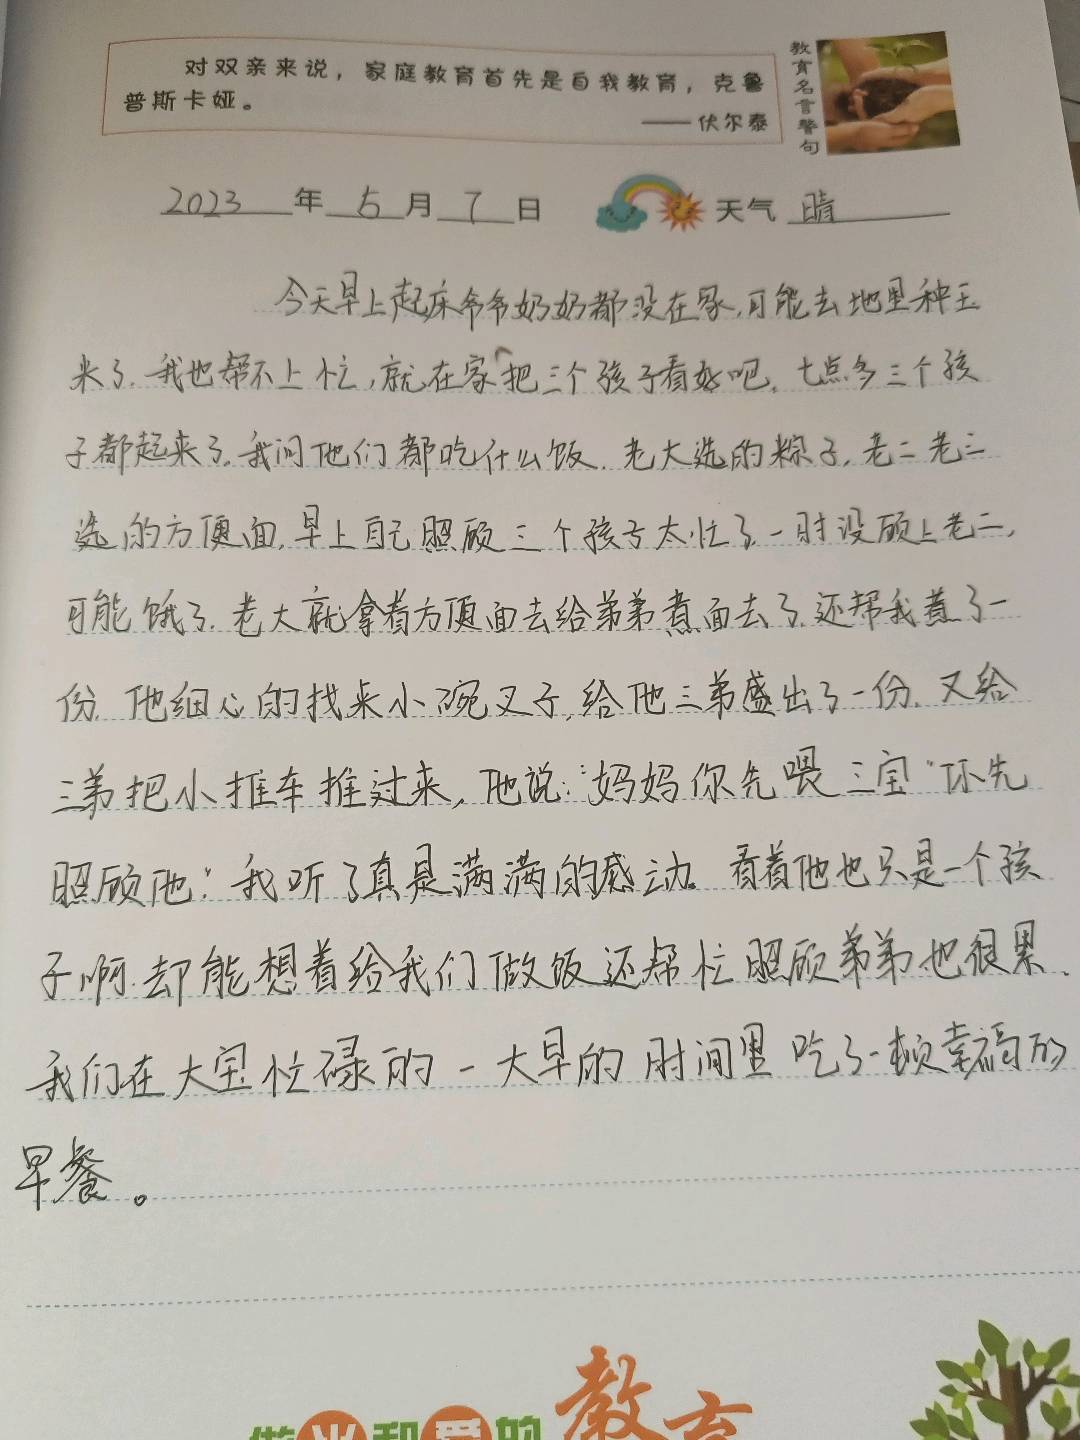 对双亲来说，家庭教育首先是自我教育，克鲁
普斯卡娅。
——伏尔泰
教育名言警句
2023年5月7日 天气 晴
今天早上起床爷爷奶奶都没在家,可能去地里种玉
米了.我也帮不上忙,就在家把三个孩子看好吧。七点多三个孩
子都起来了.我问他们都吃什么饭.老大选的粽子,老二老三
选的方便面,早上自己照顾三个孩子太忙了.一时没顾上老二,
可能饿了.老大就拿着方便面去给弟弟煮面去了.还帮我煮了一
份.他细心的找来小碗叉子,给他三弟盛出了一份.又给
三弟把小推车推过来,他说:"妈妈你先喂三宝"你先
照顾他."我听了真是满满的感动。看着他也只是一个孩
子啊.却能想着给我们做饭还帮忙照顾弟弟也很累.
我们在大宝忙碌的一大早的时间里吃了一顿幸福的
早餐。
做光和爱的教育